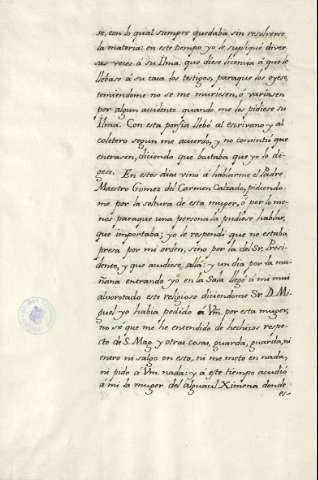 se, con lo qual siempre quedaba sin resolverse
la materia: en este tiempo yo le supliqué diver
sas veces á su Ilma. que diese licencia á que lo
llebase á su casa los testigos paraque los oyese,
temiendome no se me muriesen, ó variasen
por algun accidente quando me los pidiese su
Ilma. Con esta porfia llebé al escrivano y al
coletero segun me acuerdo, y no consintió que
entrasen, diciendo que bastaba que yo lo di-
gese. En estos dias vino á hablarme el Padre
Maestro Gomez del Carmen Calzado, pidiendo
me por la soltura de esta muger, ó por lo me-
nos paraque una persona la pudiese hablar,
que importaba; yo le respondí que no estaba
presa por mi orden, sino por la del Sr. Presi-
dente, y que acudiese allá: y un dia por la ma-
ñana entrando yo en la Sala llegó á mi mui
alborotado este religioso diciendome Sr. D. Mi-
guel yo habia pedido á Vm. por esta muger,
no se que me he entendido de hechizos respec-
to de S. Mag. y otras cosas, guarda, guarda, ni
entro ni salgo en esto, ni me meto en nada,
ni pido á Vm. nada: y á este tiempo acudió
á mi la muger del alguacil Ximena donde
es-